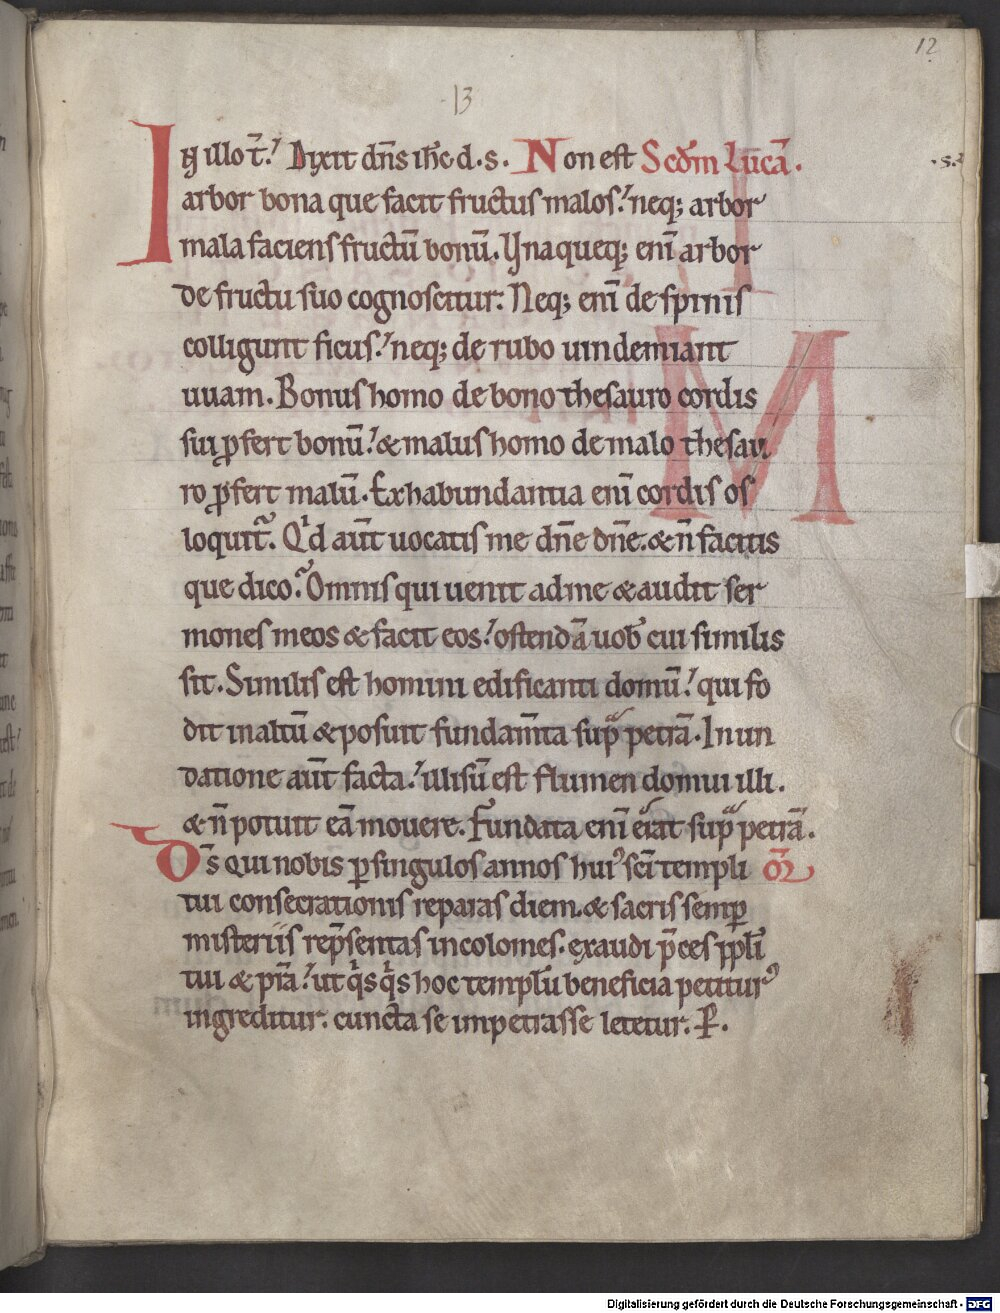 12
13
In illo t̄. Dixit dn̄s ih̄c d. s. Non est Scd̄m Lucā.
.s.
arbor bona que facit fructus malos. neq; arbor
mala faciens fructū bonū. Vnaqueq; enī arbor
de fructu suo cognoscitur. Neq; enī de spinis
colligunt ficus. neq; de rubo uindemiant
uuam. Bonus homo de bono thesauro cordis
sui ꝓfert bonū. & malus homo de malo thesau
ro ꝓfert malū. Ex habundantia enī cordis os
loquit᷑. Qͥd aūt uocatis me dn̄e dn̄e. & n̄ facitis
que dico. Omnis qui uenit ad me & audit ser
mones meos & facit eos. ostendā uob᾽ cui similis
sit. Similis est homini edificanti domū. qui fo
dit in altū & posuit fundam̄ta supͣ petrā. Inun
datione aūt facta. illisū est flumen domui illi.
& n̄ potuit eā mouere. Fundata enī erat supͣ petrā.
D̄s qui nobis ꝑ singulos annos hui᾽ sc̄i templi or̄
tui consecrationis reparas diem. & sacris semꝑ
misteriis rep̄sentas incolomes. exaudi p̄ces ppl̄i
tui & p̄ra. ut qͥsqͥs hoc templū beneficia petitur᾽
ingreditur. cuncta se impetrasse letetur. P̄.
Digitalisierung gefördert durch die Deutsche Forschungsgemeinschaft - DFG